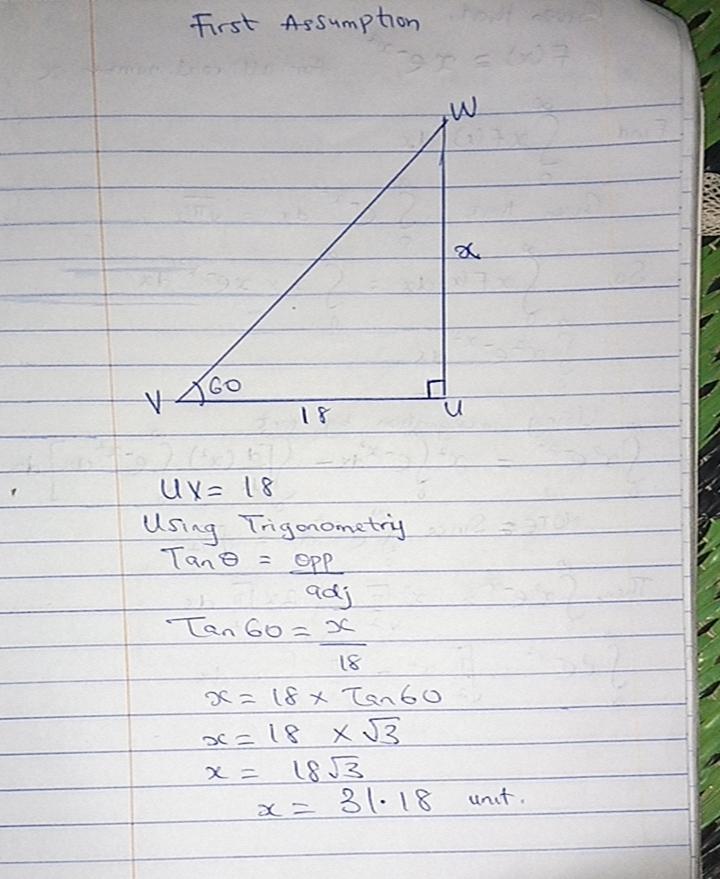 First Assumption
W
x
60
V
18
U
UV = 18
Using Trigonometry
Tanθ = opp
adj
Tan 60 = x
18
x = 18 × Tan60
x = 18 × √3
x = 18√3
x = 31.18 unit.